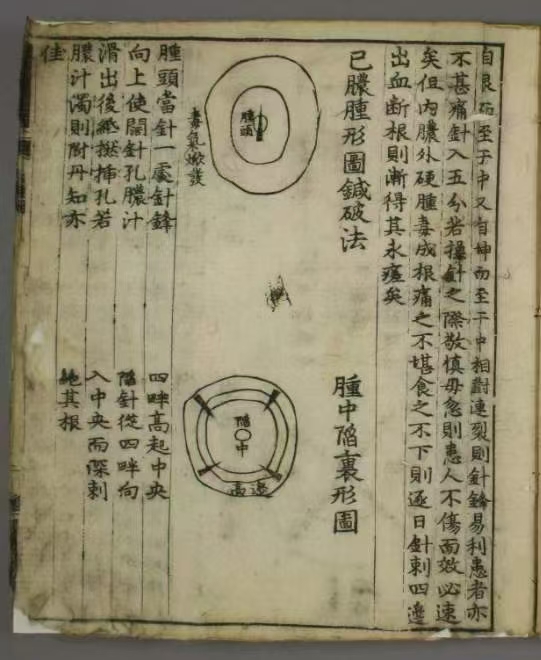 自艮而至于中又自坤而至于中相對連裂則針鋒易利患者亦
不甚痛針入五分若操針之際敬慎毋忽則患人不傷而效必速
矣但內膿外硬腫毒成根痛之不堪食之不下則逐日針刺四邊
出血斷根則漸得其永瘥矣
已膿腫形圖鍼破法
腫頭
毒氣散
腫頭當針一處針鋒
向上使闊針孔膿汁
滑出後紙撚揷孔若
膿汁濁則附丹知亦
佳
腫中陷裏形圖
陷中
高邊
四畔高起中央
陷針從四畔向
入中央而深刺
絶其根